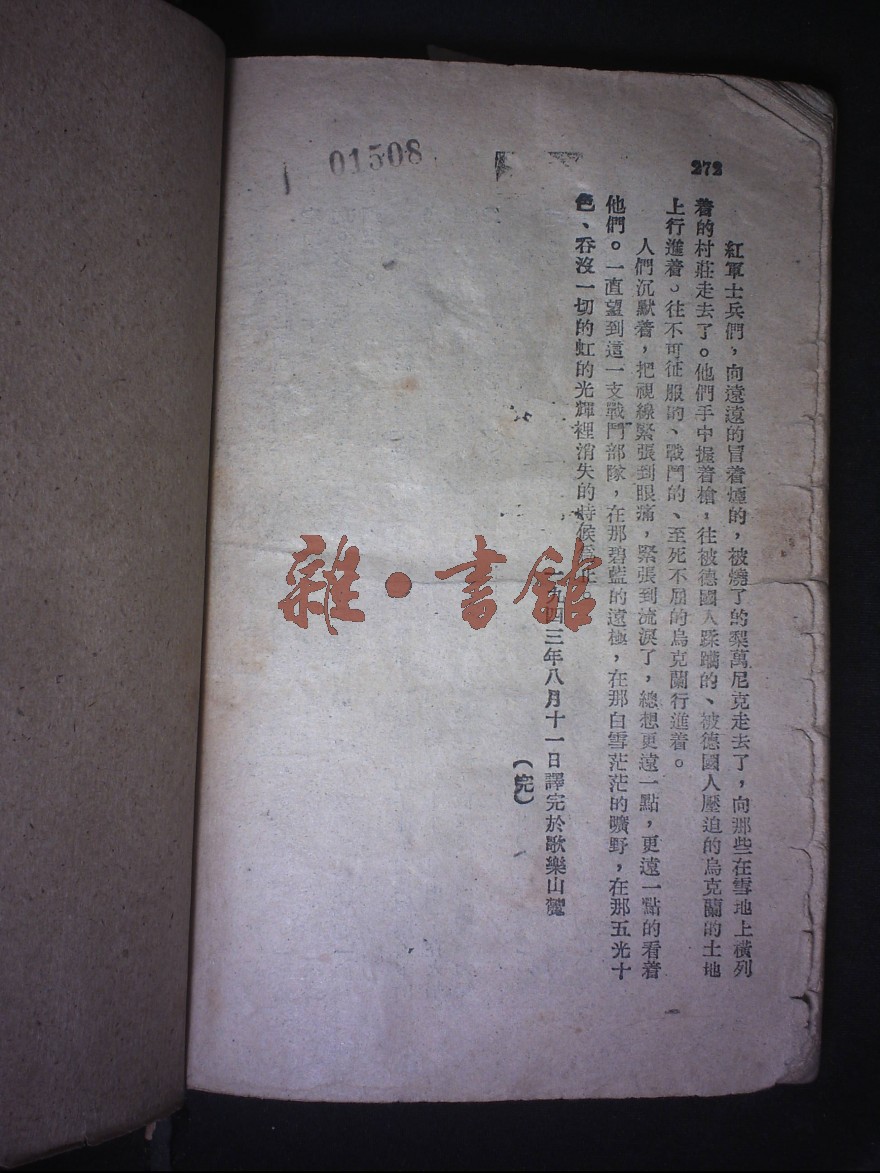 01508
272
紅軍士兵們，向遠遠的冒着煙的，被燒了的梨萬尼克走去了，向那些在雪地上橫列
着的村莊走去了。他們手中握着槍，往被德國人蹂躪的、被德國人壓迫的烏克蘭的土地
上行進着。往不可征服的、戰鬥的、至死不屈的烏克蘭行進着。
人們沉默着，把視線緊張到眼痛，緊張到流淚了，總想更遠一點，更遠一點的看着
他們。一直望到這一支戰鬥部隊，在那碧藍的遠極，在那白雪茫茫的曠野，在那五光十
色、吞沒一切的虹的光輝裡消失的時候爲止。
一九四三年八月十一日譯完於歌樂山麓
（完）
雜·書館